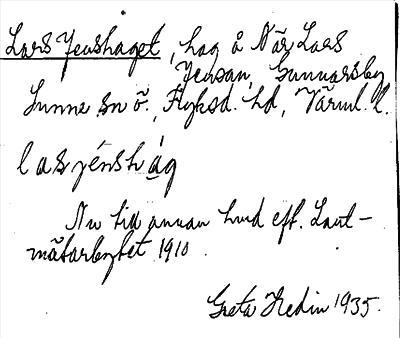 Lars Jenshaget, hag å När Lars
Jensan, Gunnarsby
Sunne sn ö., Fryksd. hd, Värml. l.
las yénshág
Nu till annan hund eff. Lant-
mätarbytet 1910
Greta Hedin 1935.